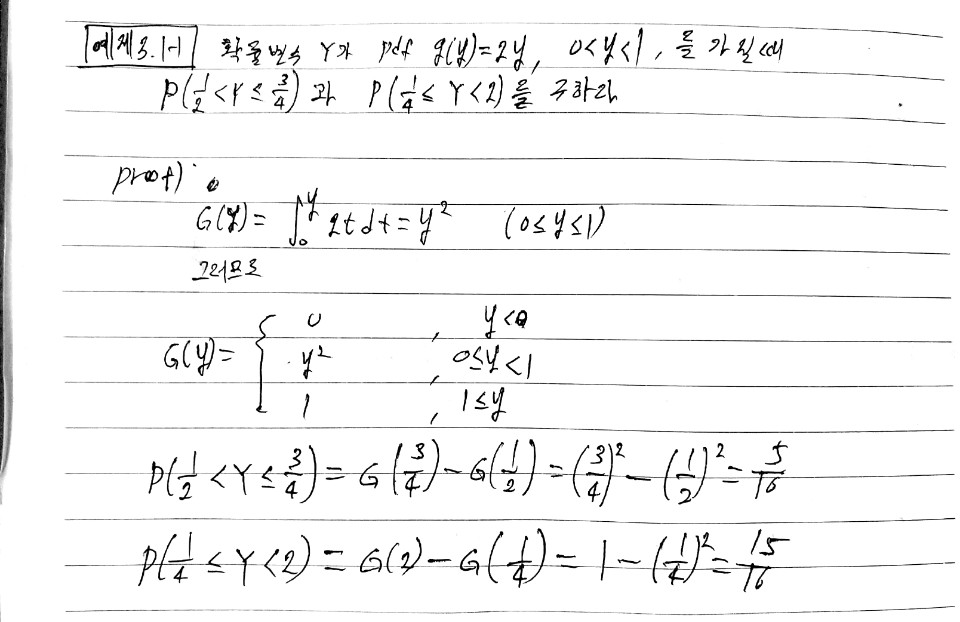 예제3.1-1 확률변수 Y가 pdf g(y)=2y, 0<y<1, 를 가질때
P(1/2<Y≤3/4) 과 P(1/4≤Y<2)를 구하라
proof)
G(y)= ∫₀^y 2t dt = y² (0≤y≤1)
그러므로
G(y)= { 0 , y<0
y² , 0≤y<1
1 , 1≤y
P(1/2<Y≤3/4)=G(3/4)-G(1/2)=(3/4)²-(1/2)²=5/16
P(1/4≤Y<2)=G(2)-G(1/4)=1-(1/4)²=15/16